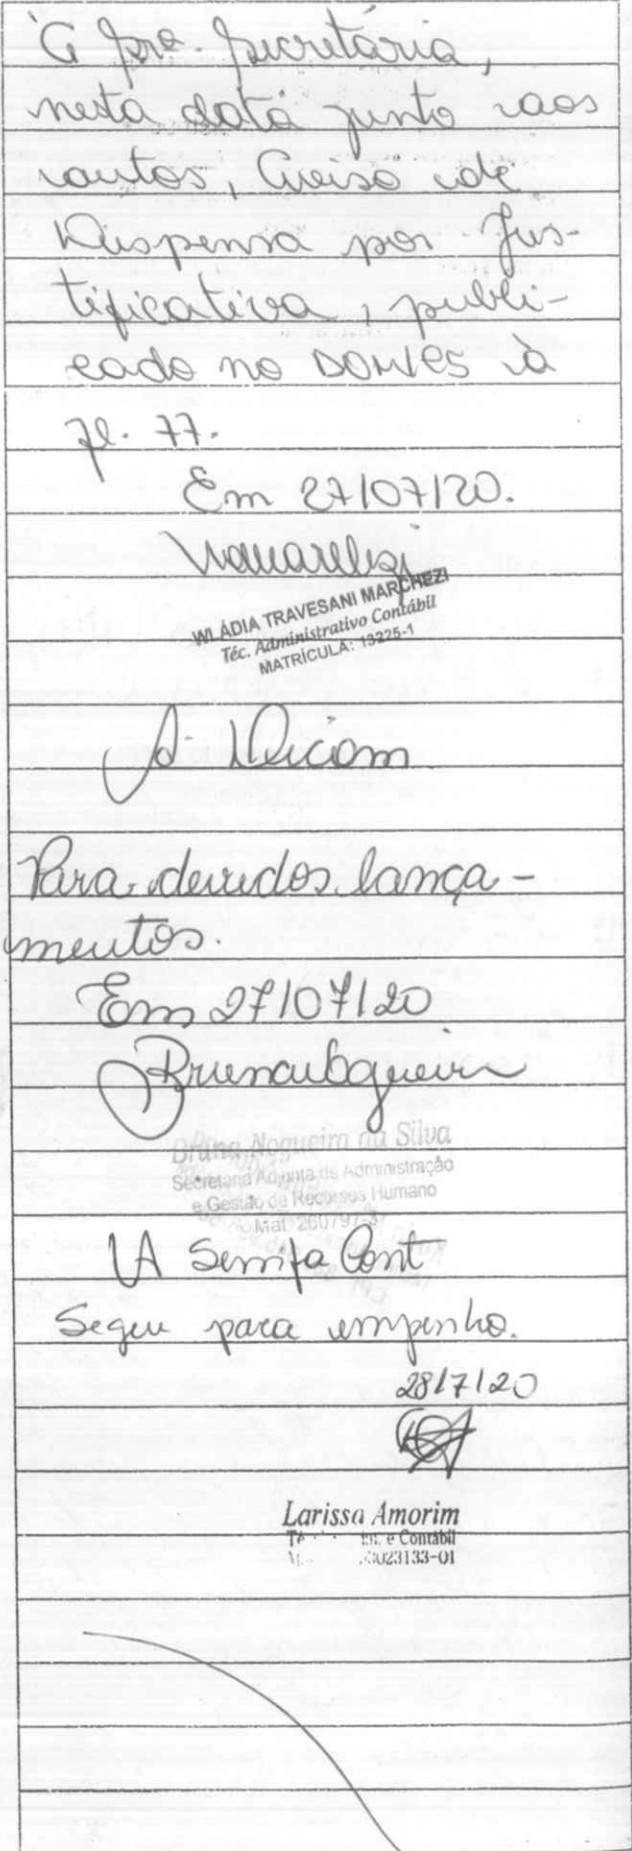 À Sra. Secretária,
nesta data junto aos
autos, Aviso de
Dispensa por Jus-
tificativa, publi-
cado no DOM/ES à
fl. 77.
Em 27/07/20.
WLADIA TRAVESANI MARCHEZI
Téc. Administrativo Contábil
MATRÍCULA: 13225-1
À Dicom
Para devidos lança-
mentos.
Em 27/07/20
Bruna Nogueira
Bruna Nogueira da Silva
Secretaria Adjunta de Administração
e Gestão de Recursos Humano
Mat 260797-3
A Semfa Cont
Segue para empenho.
28/7/20
Larissa Amorim
e Contábil
023133-01